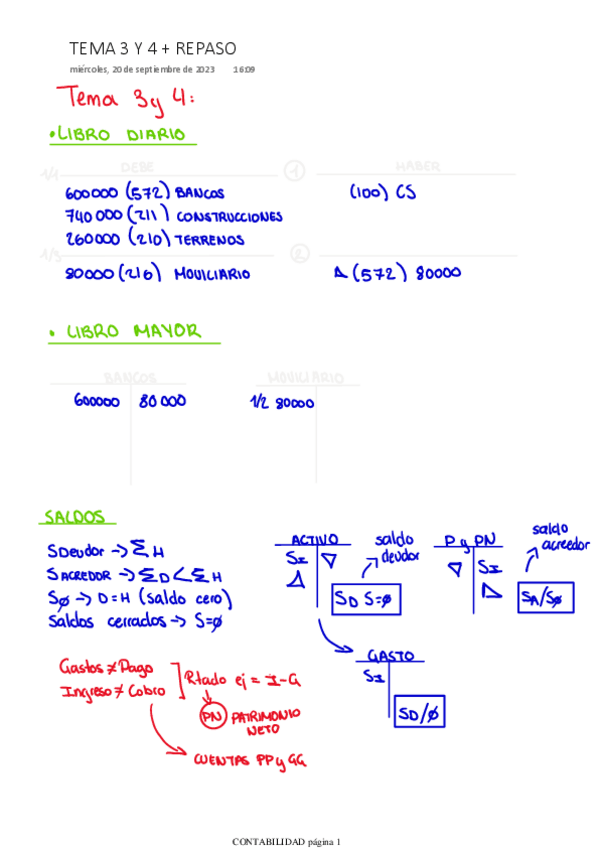 TEMA 3 Y 4 + REPASO
miércoles, 20 de septiembre de 2023 16:09
Tema 3 y 4:
• LIBRO DIARIO
1/1 DEBE 1 HABER
600000 (572) BANCOS (100) CS
740 000 (211) CONSTRUCCIONES
260000 (210) TERRENOS
1/3 2
80000 (216) MOVILIARIO Δ (572) 80000
• LIBRO MAYOR
BANCOS MOVILIARIO
600000 80 000 1/2 80000
SALDOS
SDEUDOR -> Σ H
SACREEDOR -> ΣD < Σ H
SØ -> D = H (saldo cero)
Saldos cerrados -> S=Ø
ACTIVO saldo deudor
SI ▽
Δ SD S=Ø
P y PN saldo acreedor
▽ SI
Δ SA/SØ
GASTO
SI
SD/Ø
Gastos ≠ Pago
Ingreso ≠ Cobro
Rtado ej = I - G
PN PATRIMONIO NETO
CUENTAS PP y GG
CONTABILIDAD página 1